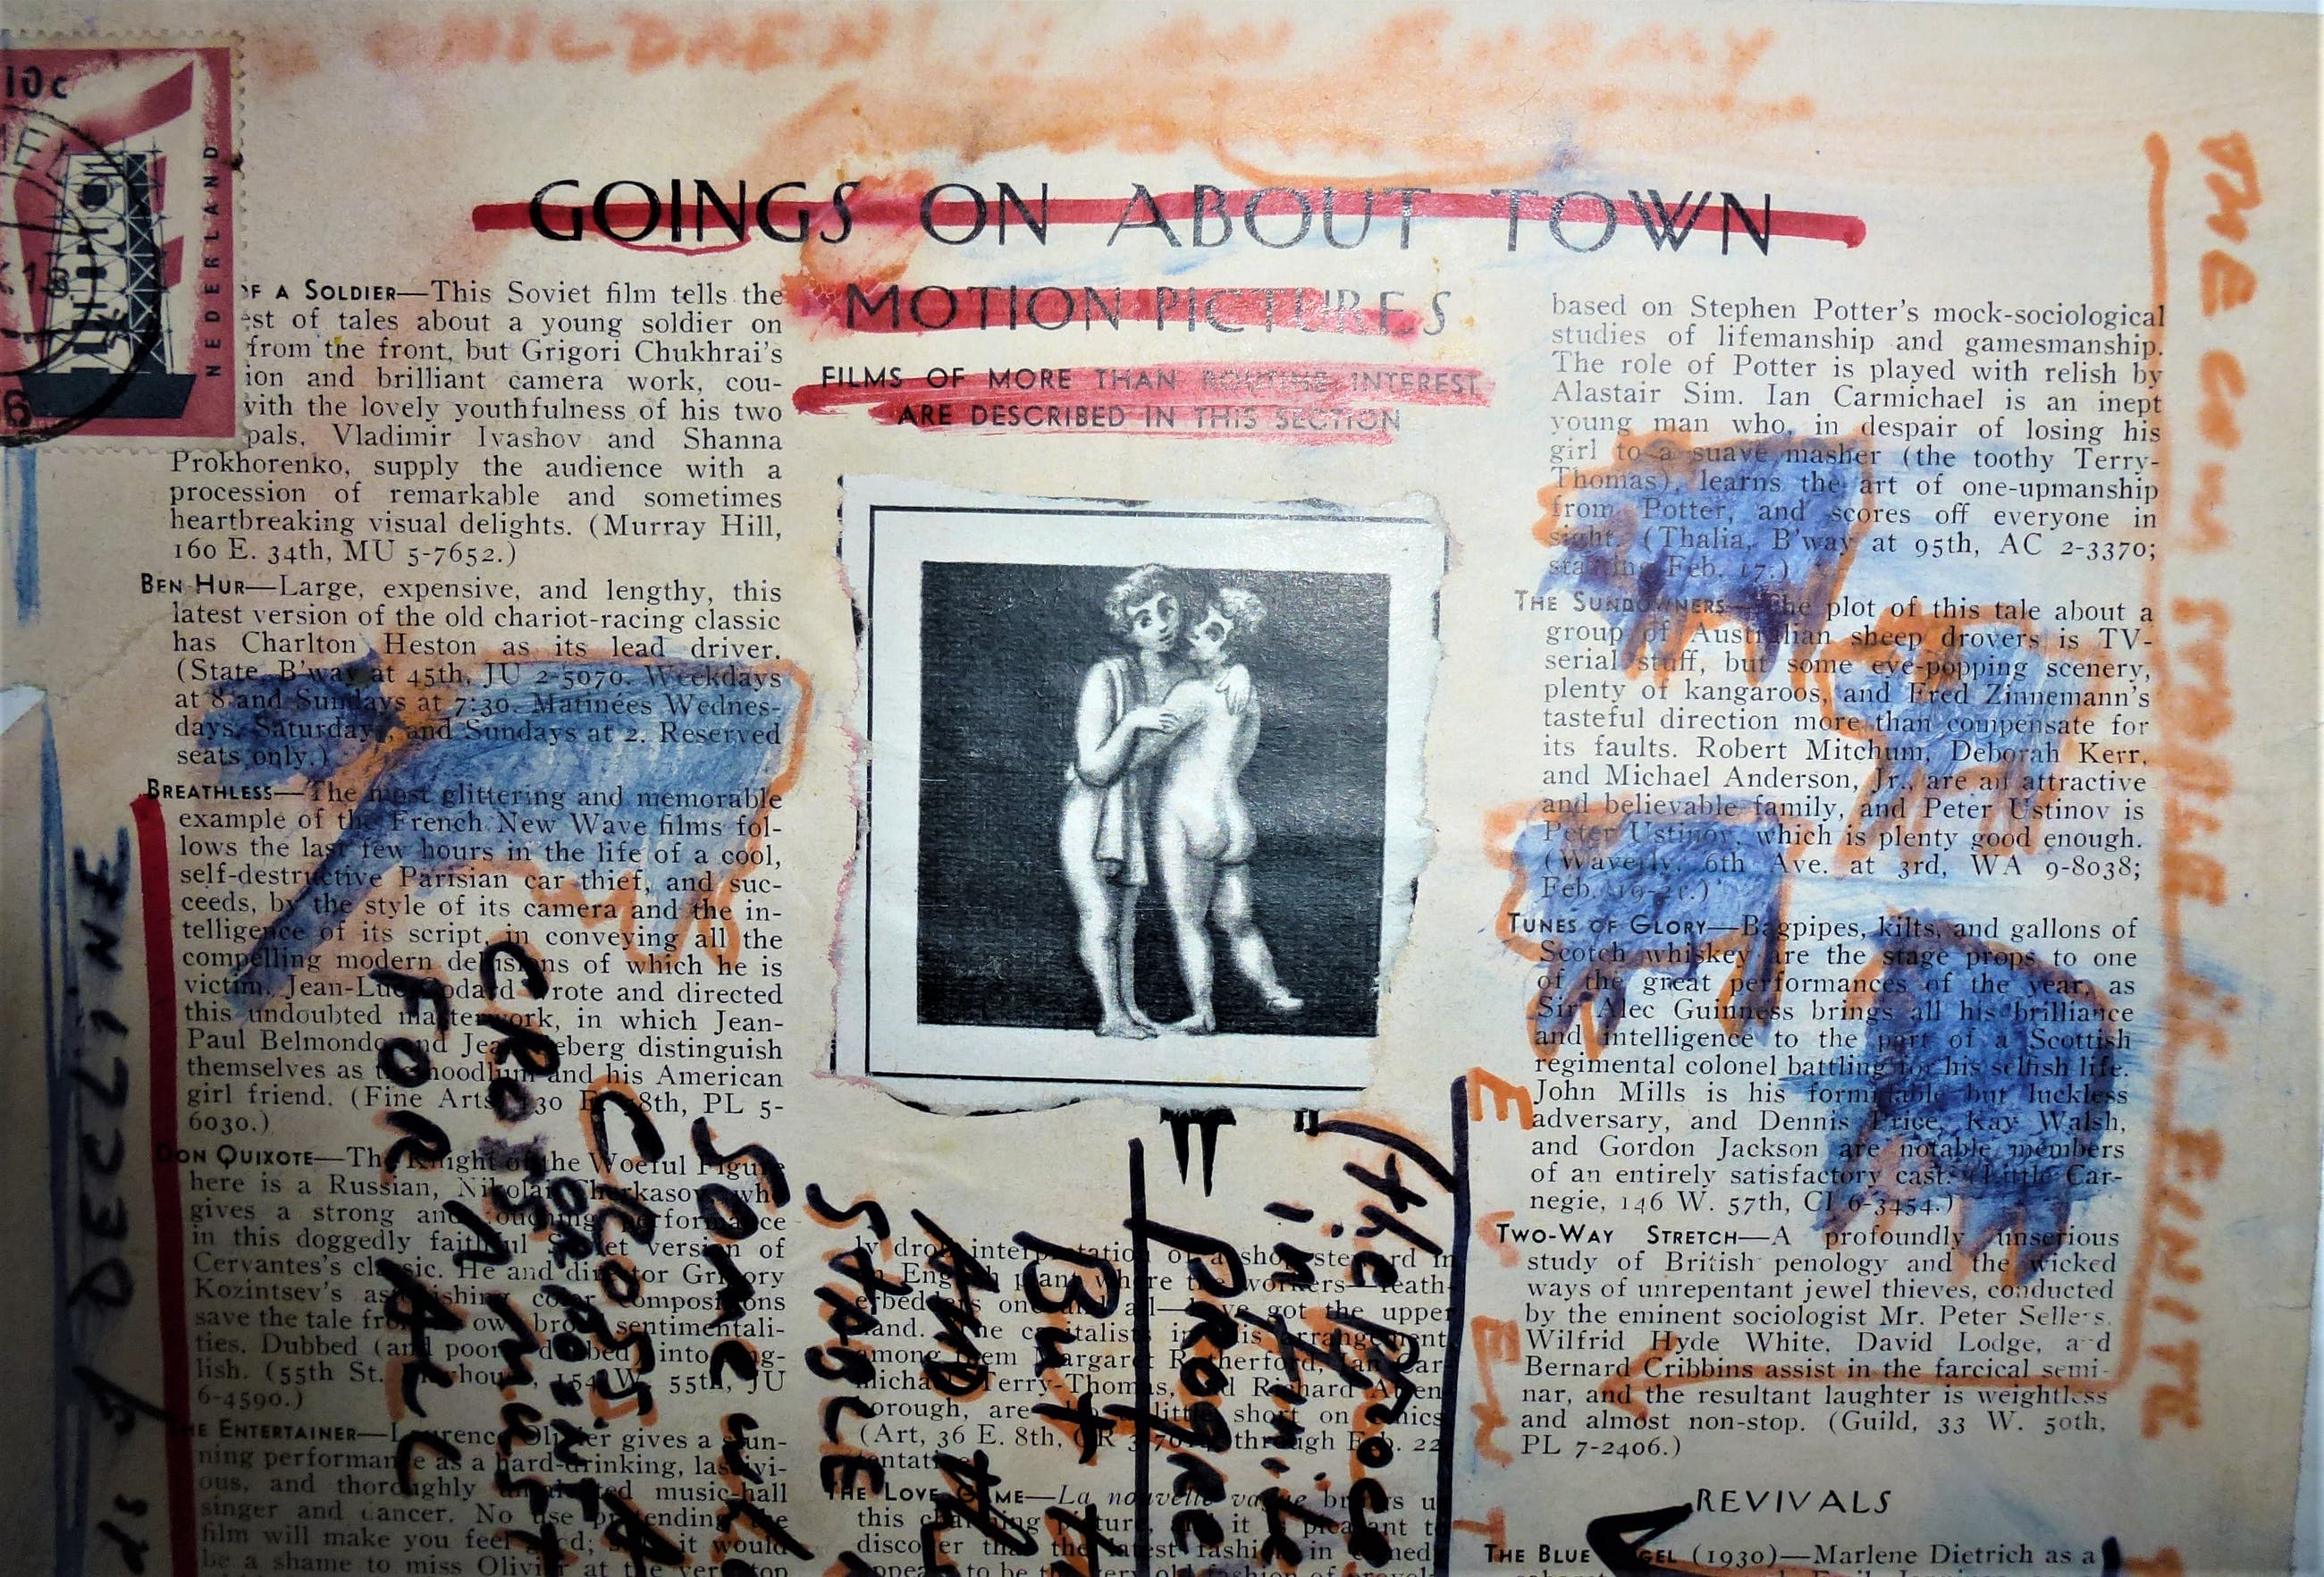 CHILDREN
10c
NEDERLAND
GOINGS ON ABOUT TOWN
MOTION PICTURES
FILMS OF MORE THAN ROUTINE INTEREST
ARE DESCRIBED IN THIS SECTION
OF A SOLDIER—This Soviet film tells the
est of tales about a young soldier on
from the front, but Grigori Chukhrai's
ion and brilliant camera work, cou-
with the lovely youthfulness of his two
pals, Vladimir Ivashov and Shanna
Prokhorenko, supply the audience with a
procession of remarkable and sometimes
heartbreaking visual delights. (Murray Hill,
160 E. 34th, MU 5-7652.)
BEN HUR—Large, expensive, and lengthy, this
latest version of the old chariot-racing classic
has Charlton Heston as its lead driver.
(State, B'way at 45th, JU 2-5070. Weekdays
at 8 and Sundays at 7:30. Matinées Wednes-
days, Saturdays, and Sundays at 2. Reserved
seats only.)
BREATHLESS—The most glittering and memorable
example of the French New Wave films fol-
lows the last few hours in the life of a cool,
self-destructive Parisian car thief, and suc-
ceeds, by the style of its camera and the in-
telligence of its script, in conveying all the
compelling modern delusions of which he is
victim. Jean-Luc Godard wrote and directed
this undoubted masterwork, in which Jean-
Paul Belmondo and Jean Seberg distinguish
themselves as the hoodlum and his American
girl friend. (Fine Arts, 130 E. 58th, PL 5-
6030.)
DON QUIXOTE—The Knight of the Woeful Figure
here is a Russian, Nikolai Cherkasov, who
gives a strong and touching performance
in this doggedly faithful Soviet version of
Cervantes's classic. He and director Grigory
Kozintsev's astonishing color compositions
save the tale from own broad sentimentali-
ties. Dubbed (and poorly dubbed) into Eng-
lish. (55th St. Playhouse, 154 W. 55th, JU
6-4590.)
THE ENTERTAINER—Laurence Olivier gives a stun-
ning performance as a hard-drinking, lascivi-
ous, and thoroughly music-hall
singer and dancer. No use pretending the
film will make you feel good; it would
be a shame to miss Olivier at the very top
ly droll interpretation of a shop steward in
an English plant where the workers—feath-
erbedders one and all—have got the upper
hand. The capitalists in this arrangement,
among them Margaret Rutherford, Ian Car-
michael, Terry-Thomas, and Richard Atten-
borough, are also a little short on ethics.
(Art, 36 E. 8th, GR through Feb. 22
tentative
THE LOVE GAME—La nouvelle vague brings us
this charming picture, and it is pleasant to
discover that the latest fashion in
based on Stephen Potter's mock-sociological
studies of lifemanship and gamesmanship.
The role of Potter is played with relish by
Alastair Sim. Ian Carmichael is an inept
young man who, in despair of losing his
girl to a suave masher (the toothy Terry-
Thomas), learns the art of one-upmanship
from Potter, and scores off everyone in
sight. (Thalia, B'way at 95th, AC 2-3370;
starting Feb. 17.)
THE SUNDOWNERS—The plot of this tale about a
group of Australian sheep drovers is TV-
serial stuff, but some eye-popping scenery,
plenty of kangaroos, and Fred Zinnemann's
tasteful direction more than compensate for
its faults. Robert Mitchum, Deborah Kerr,
and Michael Anderson, Jr., are an attractive
and believable family, and Peter Ustinov is
Peter Ustinov, which is plenty good enough.
(Waverly, 6th Ave. at 3rd, WA 9-8038;
Feb. 19-21.)
TUNES OF GLORY—Bagpipes, kilts, and gallons of
Scotch whiskey are the stage props to one
of the great performances of the year, as
Sir Alec Guinness brings all his brilliance
and intelligence to the part of a Scottish
regimental colonel battling for his selfish life.
John Mills is his formidable but luckless
adversary, and Dennis Price, Kay Walsh,
and Gordon Jackson are notable members
of an entirely satisfactory cast. (Little Car-
negie, 146 W. 57th, CI 6-3454.)
TWO-WAY STRETCH—A profoundly unserious
study of British penology and the wicked
ways of unrepentant jewel thieves, conducted
by the eminent sociologist Mr. Peter Sellers.
Wilfrid Hyde White, David Lodge, and
Bernard Cribbins assist in the farcical semi-
nar, and the resultant laughter is weightless
and almost non-stop. (Guild, 33 W. 50th,
PL 7-2406.)
REVIVALS
THE BLUE ANGEL (1930)—Marlene Dietrich as a
DECLINE
FOR ALL
CROSS
SOME